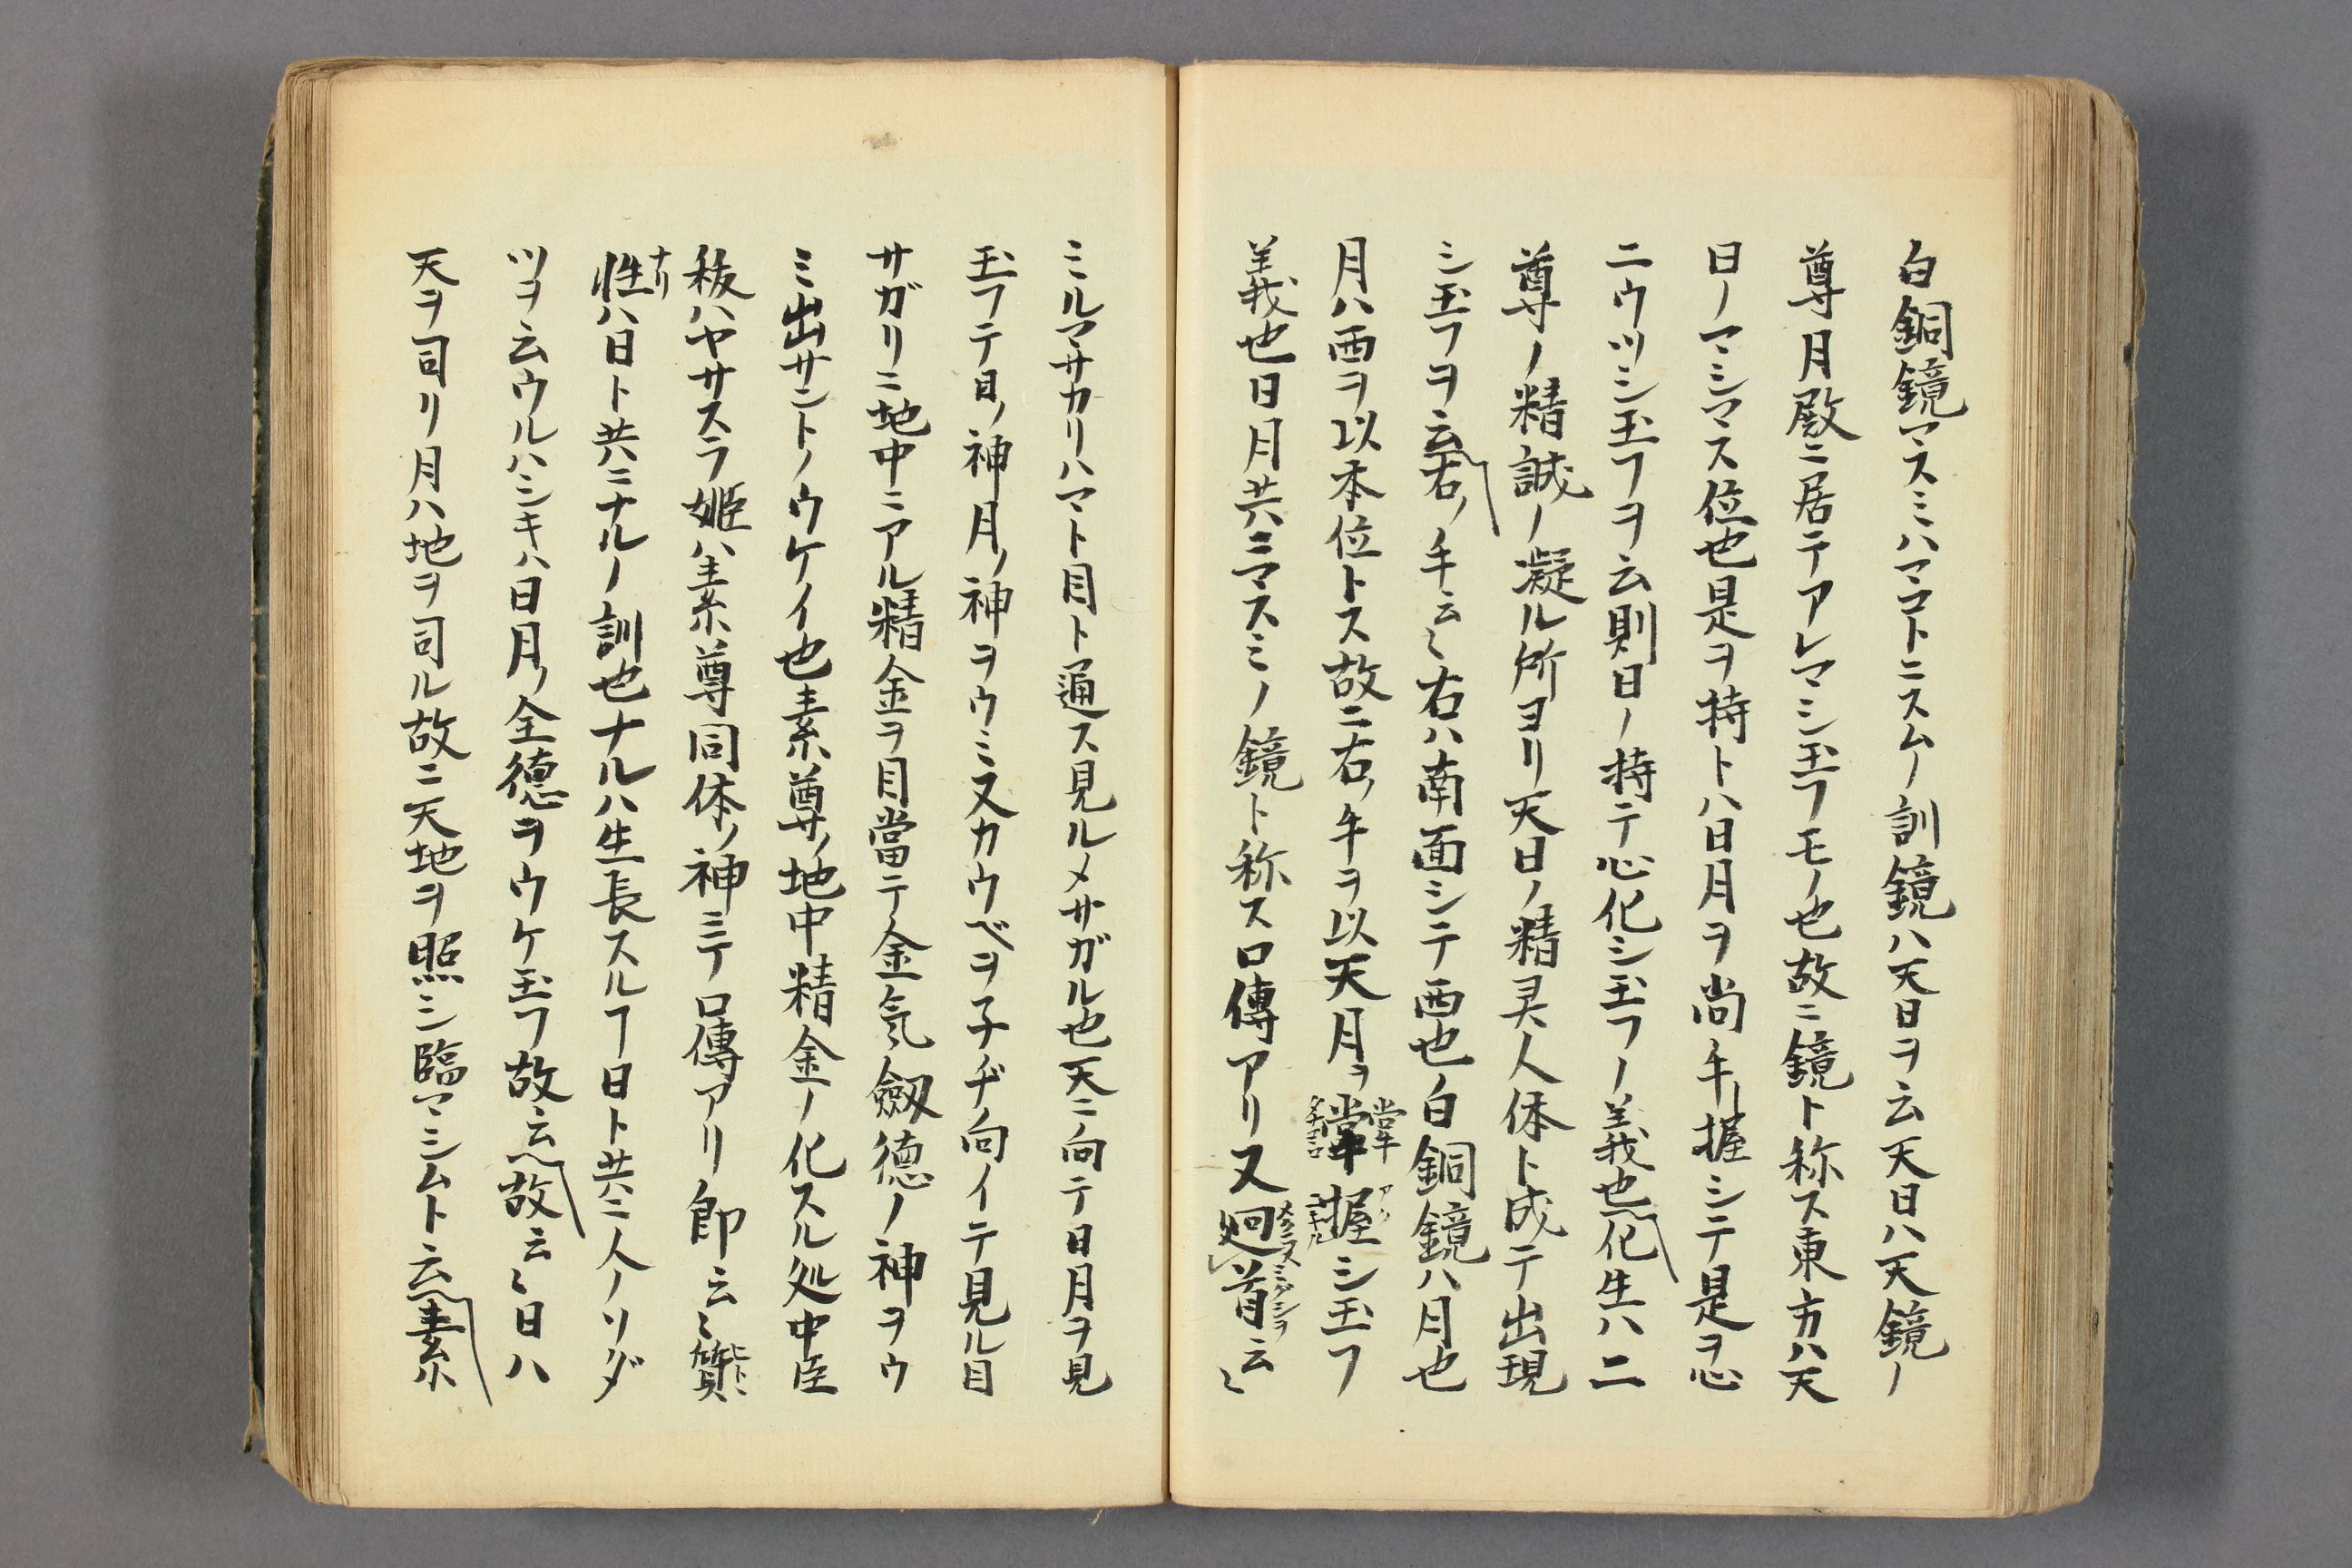 白銅鏡マスミハマコトニスムノ訓鏡ハ天日ヲ云天日ハ天鏡ノ
尊月殿ニ居テアレマシ玉フモノ也故ニ鏡ト称ス東方ハ天
日ノマシマス位也是ヲ持トハ日月ヲ尚手ニ握シテ是ヲ心
ニウツシ玉フヲ云則日ノ持テ心化シ玉フノ義也化生ハ二
尊ノ精誠ノ凝ル所ヨリ天日ノ精灵人体ト成テ出現
シ玉フヲ云右ノ手云〻右ハ南面シテ西也白銅鏡ハ月也
月ハ西ヲ以本位トス故ニ右ノ手ヲ以天月ヲ掌握シ玉フ
義也日月共ニマスミノ鏡ト称ス口傳アリ又廻首云〻
ミルマサカリハマト目ト通ス見ルメサガル也天ニ向テ日月ヲ見
玉フテ日ノ神月ノ神ヲウミ又カウベヲ子ヂ向イテ見ル目
サガリニ地中ニアル精金ヲ目當テ金気劔德ノ神ヲウ
ミ出サントノウケイ也素尊ノ地中精金ノ化スル処中臣
秡ハヤサスラ姫ハ素尊同体ノ神ニテ口傳アリ即云〻質
性ハ日ト共ニナルノ訓也ナルハ生長スルヿ日ト共ニ人ノソダ
ツヲ云ウルハシキハ日月ノ全德ヲウケ玉フ故云故云〻日ハ
天ヲ司リ月ハ地ヲ司ル故ニ天地ヲ照シ臨マシムト云素